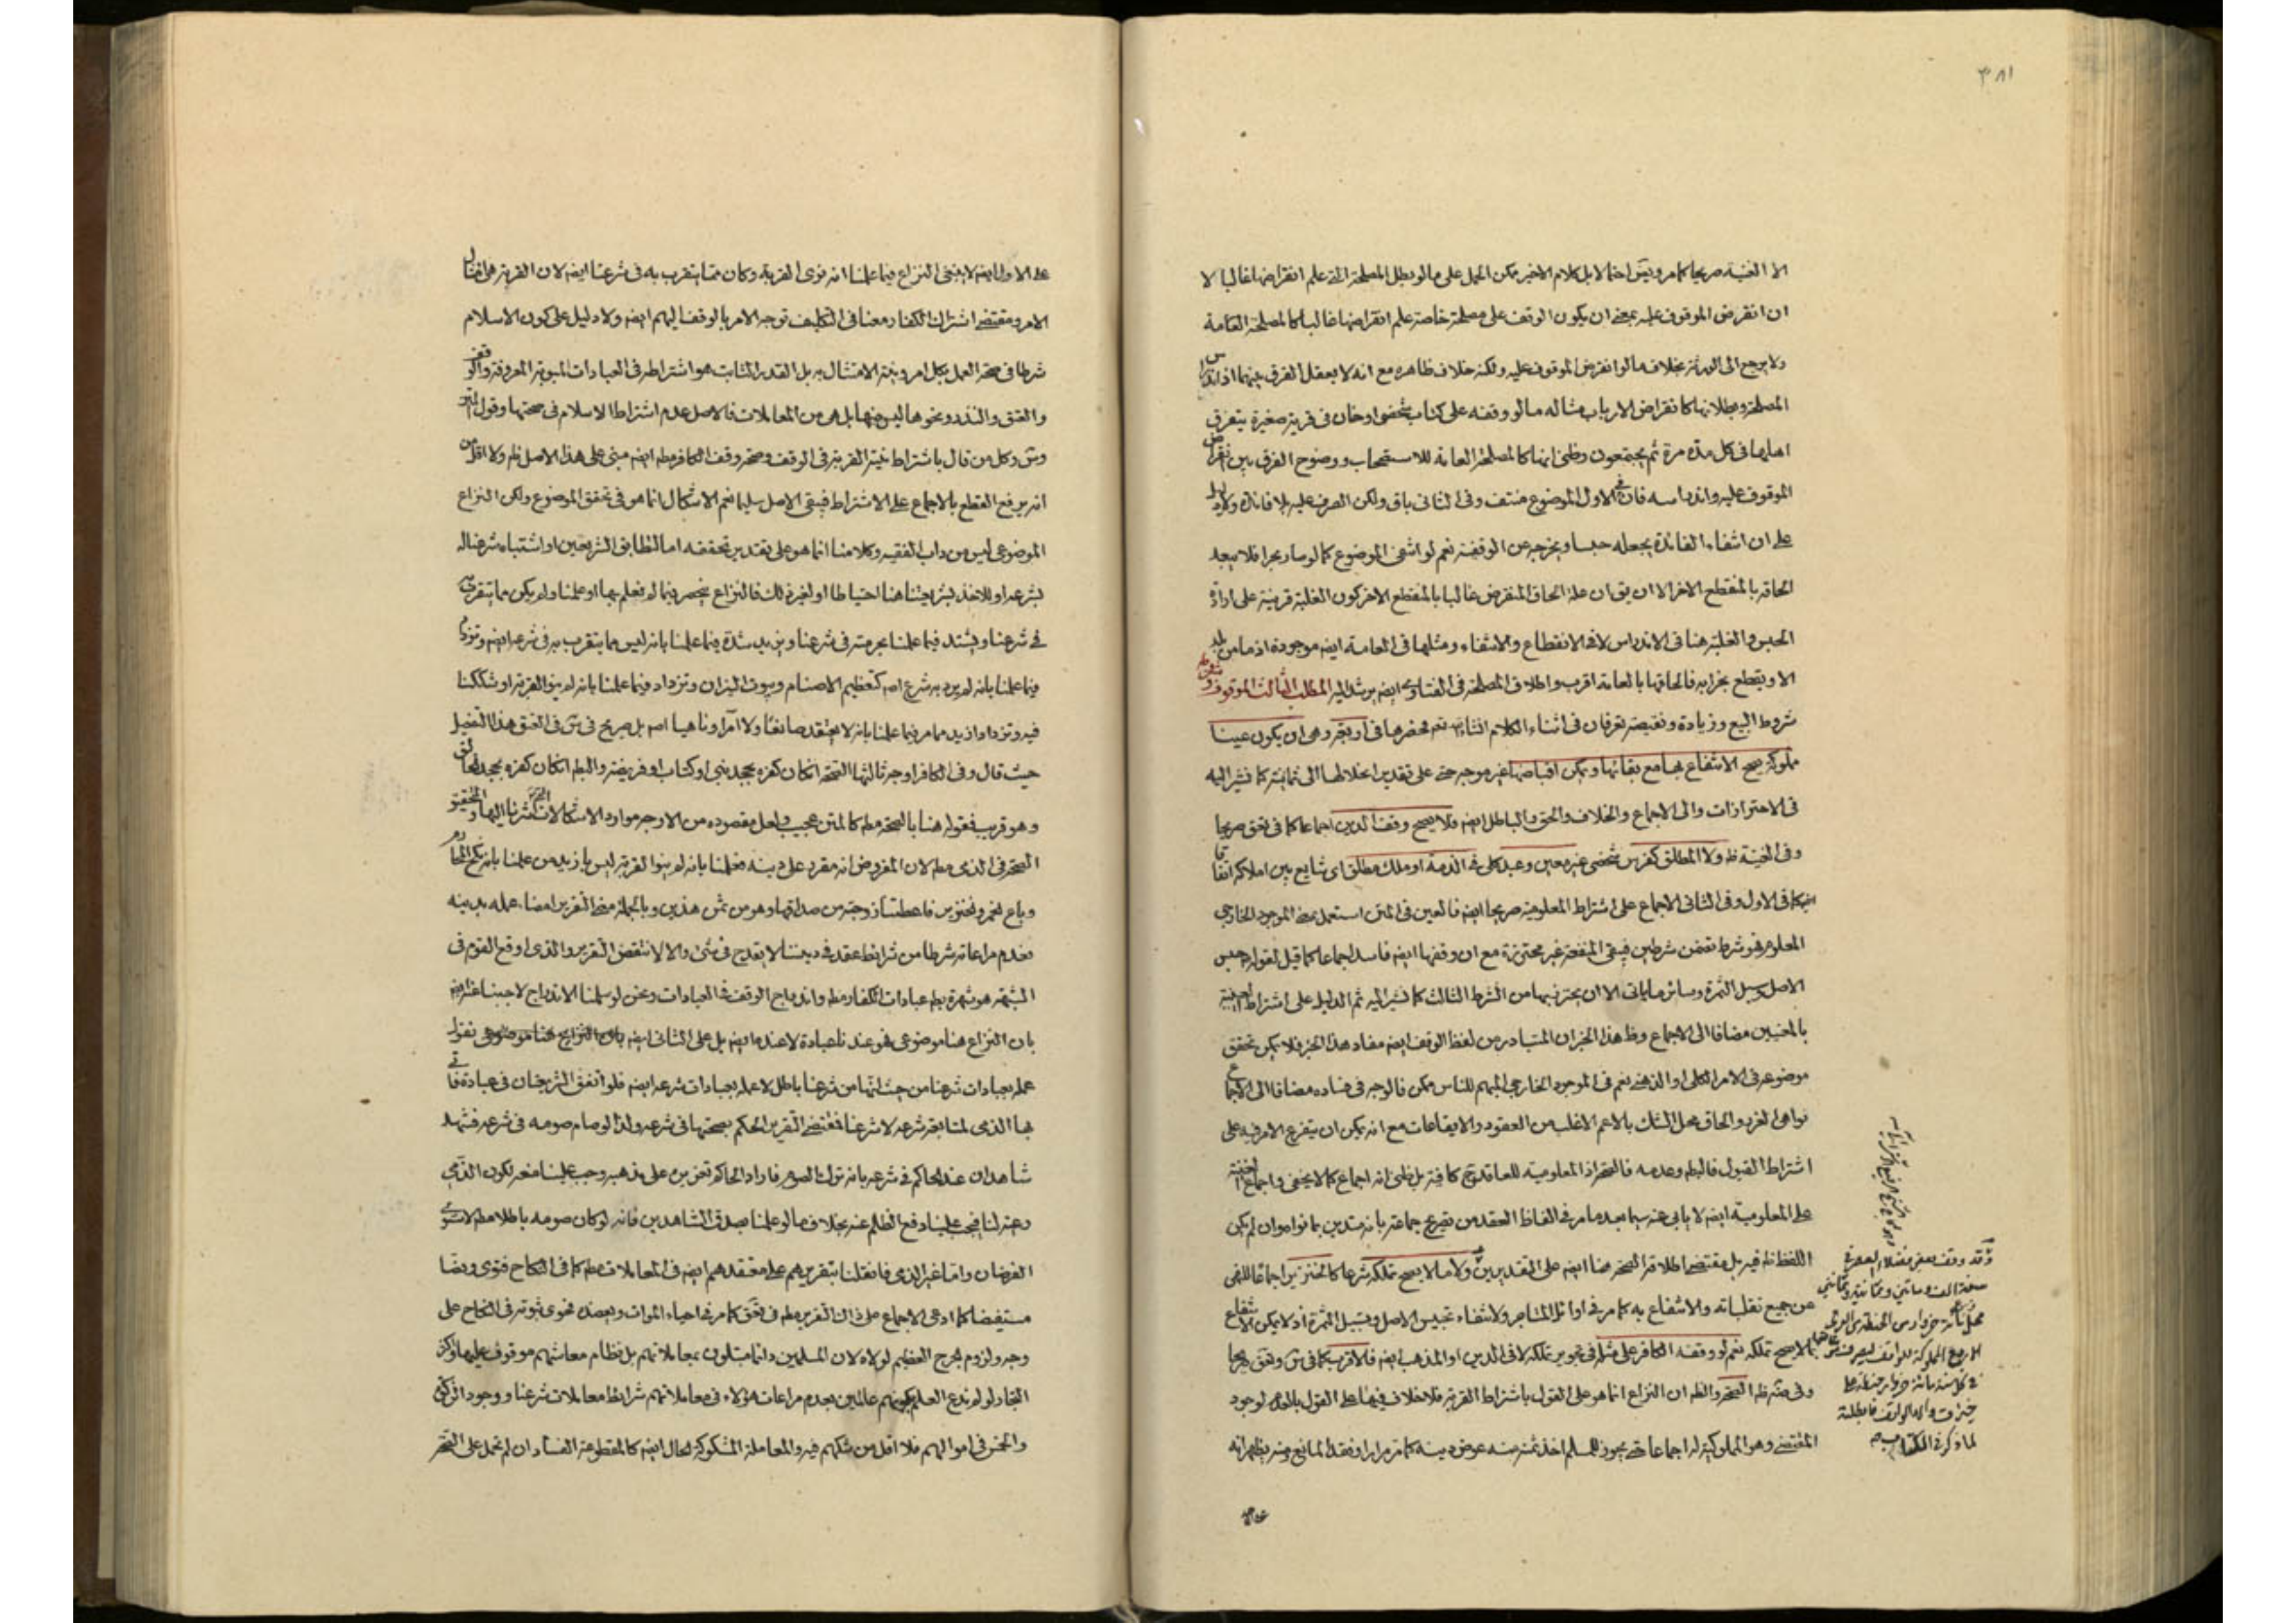 ٣٨١
الا الغنية صريحا كما مر ويش احتمالا بل كلام الاخير يمكن الحمل على ما لو بطل المصلحة التى علم انقراضها غالبا لا
ان انقرض الموقوف عليه بمعنى ان يكون الوقف على مصلحة خاصة علم انقراضها غالبا كالمصلحة العامة
ولا يرجع الى الورثة بخلاف ما لو انقرض الموقوف عليه ولكنه خلاف ظاهره مع انه لا يعقل الفرق بينهما اذ اندراس
المصلحة وبطلانها كانقراض الارباب مثاله ما لو وقفه على كتاب شخصى او خان فى قرية صغيرة يتفرق
اهلها فى كل مدة مرة ثم يجتمعون وظنى انها كالمصلحة العامة للاستصحاب ووضوح الفرق بين انقراض
الموقوف عليه واندراسه فان فى الاول الموضوع منتف وفى الثانى باق ولكن الصرف عليه بلا فائدة ولا دليل
على ان انتفاء الفائدة يجعله حبسا ويخرجه عن الوقفية نعم لو انتفى الموضوع كما لو صار بحرا فلا يبعد
الحاقه بالمنقطع الاخر الا ان يق ان علة الحاق المنقرض غالبا بالمنقطع الاخر كون الغلبة قرينة على ارادة
الحبس والغلبة هنا فى الاندراس لا فى الانقطاع والانتفاء ومثلها فى العامة ايضه موجودة اذ ما من بلد
الا ويقطع بخرابه فالحاقها بالعامة اقرب واطلاق المصلحة فى الفتاوى ايضه يرشد اليه المطلب الثالث الموقوف وشروطه
شروط البيع وزيادة ونقيصة تعرفان فى اثناء الكلام انشاء الله تعم نحصرها فى اربعة وهى ان يكون عينا
مملوكة يصح الانتفاع بها مع بقائها ويمكن اقباضها غير موجر حتى على تقدير انحلالها الى ثمانية كما نشير اليه
فى الاحترازات والى الاجماع والخلاف والحق والباطل ايضه فلا يصح وقف الدين اجماعا كما فى تحق صريحا
وفى الغنية ظه ولا المطلق كفرس شخصى غير معين وعبد كلى فى الذمة او ملك مطلق اى شايع بين املاكه اتفاقا
ايضه كما فى الاول وفى الثانى الاجماع على اشتراط المعلومية صريحا ايضه فالعين فى المتن استعمل بمعنى الموجود الخارجى
المعلوم فهو شرط تضمن شرطين فيبقى المنفعة غير محترزة مع ان وقفها ايضه فاسد اجماعا كما قيل لقوله حبس
الاصل وسبل الثمرة وسائر ما ياتى الا ان يحترز بها من الشرط الثالث كما نشير اليه ثم الدليل على اشتراط العينية
بالمعنيين مضافا الى الاجماع وظ هذا الخبر ان المتبادر من لفظ الوقف ايضه مفاد هذا الخبر فلا يمكن تحقق
موضوعه فى الامر الكلى او الذهنى نعم فى الموجود الخارجى المبهم للناس ممكن فالوجه فى فساده مضافا الى الاجماع
نواهى الغرر والحاق محل الشك بالاعم الاغلب من العقود والايقاعات مع انه يمكن ان يتفرع الامر فيه على
اشتراط القبول فالبطه وعدمه فالصحة اذ المعلومية للعاقد كافية بل ظنى انه اجماع كما لا يخفى واجماع الغنية
على المعلومية ايضه لا يابى عنه سيما بعد ما مر فى الفاظ العقد من تصريح جماعة بانه متدين بما نواه وان لم يكن
اللفظ ظه فيه بل مقتضى اطلاقه الصحة هنا ايضه على التقديرين ولا ما لا يصح تملكه شرعا كالخنزير اجماعا للنهى
عن جميع تقلباته والانتفاع به كما مر فى اوائل المتاجر ولانتفاء تحبيس الاصل وتسبيل الثمرة اذ لا يمكن الانتفاع
بما لا يصح تملكه نعم لو وقفه الكافر على مثله فى تجويز تملكه لا فى الدين او المذهب ايضه فالاقرب كما فى ش وتحق صريحا
وفى ضه ظه الصحة والظه ان النزاع انما هو على القول باشتراط القربة فلا خلاف فيها على القول بالعدم لوجود
المقتضى وهو المملوكية له اجماعا حتى يجوز للمسلم اخذ ثمنه منه عوض دينه كما مر مرارا وفقد المانع ومنه يظهر انه
وقد وقف بعض فضلاء العصر فى
سنة الف ومائتين وثمانية وثمانين
فى كل سنة مائة خروار حنطة على
خيرات والد الواقف فابطلته
لما ذكر فى الكتاب منه
على الاول ايضه لا ينبغى النزاع فيما علمنا انه نوى القربة وكان مما يتقرب به فى شرعنا ايضه لان القربة هى امتثال
الامر ومقتضى اشتراك الكفار معنا فى التكليف توجه الامر بالوقف اليهم ايضه ولا دليل على كون الاسلام
شرطا فى صحة العمل بكل امر ونية الامتثال به بل القدر الثابت هو اشتراطه فى العبادات المبوبة المعروفة والوقف
والعتق والنذر ونحوها ليس منها بل هى من المعاملات فالاصل عدم اشتراط الاسلام فى صحتها وقول
وش وكل من قال باشتراط نية القربة فى الوقف وصحة وقف الكافر مطه ايضه مبنى على هذا الاصل ظه ولا اقل من
انه يرفع القطع بالاجماع على الاشتراط فيبقى الاصل سليما نعم الاشكال انما هو فى تحقق الموضوع ولكن النزاع
الموضوعى ليس من داب الفقيه وكلامنا انما هو على تقدير تحققه اما لتطابق الشريعتين او اشتباه شرعنا له
بشرعه او للاخذ بشريعتنا هنا احتياطا او لغير ذلك فالنزاع ينحصر فيما لم نعلم بها او علمنا ولم يكن مما يتقرب به
فى شرعنا ويشتد فيما علمنا بحرمته فى شرعنا ويزيد شدة فيما علمنا بانه ليس مما يتقرب به فى شرعه ايضه وتزداد
فيما علمنا بانه لم يرد به شرع اصه كتعظيم الاصنام وبيوت النيران وتزداد فيما علمنا بانه لم ينو القربة او شككنا
فيه وتزداد ازيد مما مر فيما علمنا بانه لا يعتقد صانعا ولا آمرا وناهيا اصه بل صريح فى ش فى العتق هذا التفصيل
حيث قال وفى الكافر اوجه ثالثها الصحة ان كان كفره بجحد نبى او كتاب او فريضة والبطه ان كان كفره بجحد الخالق
وهو قريب فقوله هنا بالصحة مطه كالمتن عجيب ولعل مقصوده من الاوجه موارد الاشكالات التى اشرنا اليها والتحقيق
الصحة فى الذمى مطه لان المفروض انه مقرر على دينه فعلمنا بانه لم ينو القربة ليس بازيد من علمنا بانه نكح المحارم
وباع الخمر والخنزير فاعطتنا زوجته من صداقها وهو من ثمن هذين وبالجملة معنى التقرير امضاء عمله بدينه
فعدم مراعاته شرطا من شرائط عقد فى ديننا لا يقدح فى شئ والا لانتقض التقرير والذى اوقع القوم فى
الشبهة هو شهرة بطه عبادات الكفار مطه واندراج الوقف فى العبادات ونحن لو سلمنا الاندراج لاجبنا عنه ايضه
بان النزاع هنا موضوعى فهو عندنا عبادة لا عنده ايضه بل على الثانى ايضه نقول
عمله بعبادات شرعنا من حيث انها من شرعنا باطل لا عمله بعبادات شرعه ايضه فلو اتفق الشريعتان فى عبادة فاتى
بها الذمى لمتابعة شرعه لا شرعنا فمقتضى التقرير الحكم بصحتها فى شرعه ولذا لو صام صومه فى شرعه فشهد
شاهدان عند الحاكم فى شرعه بانه ترك الصوم فاراد الحاكم تعزيره على مذهبه وجب علينا منعه لكون الذمى
رعية لنا فيجب علينا دفع الظلم عنه بخلاف ما لو علمنا بصدق الشاهدين فانه لو كان صومه باطلا مطه لاستوى
الفرضان واما غير الذمى فانقلنا بتقريرهم على معتقدهم ايضه فى المعاملات مطه كما فى النكاح فتوى ونصا
مستفيضا كما ادعى الاجماع على ذلك التقرير مطه فى تحق كما مر فى احياء الموات ويعضده فحوى ثبوته فى النكاح على
وجه ولزوم الحرج العظيم لولاه لان المسلمين دائما مبتلون بمعاملاتهم بل نظام معاشهم موقوف عليها واكثر
التجار لو لم ندع العلم بكونهم عالمين بعدم مراعات هؤلاء فى معاملاتهم شرائط معاملات شرعنا ووجود الزكوة
والخمس فى اموالهم فلا اقل من شكهم فيه والمعاملة المشكوكة الحال ايضه كالمقطوعة الفساد ان لم تحمل على الصحة